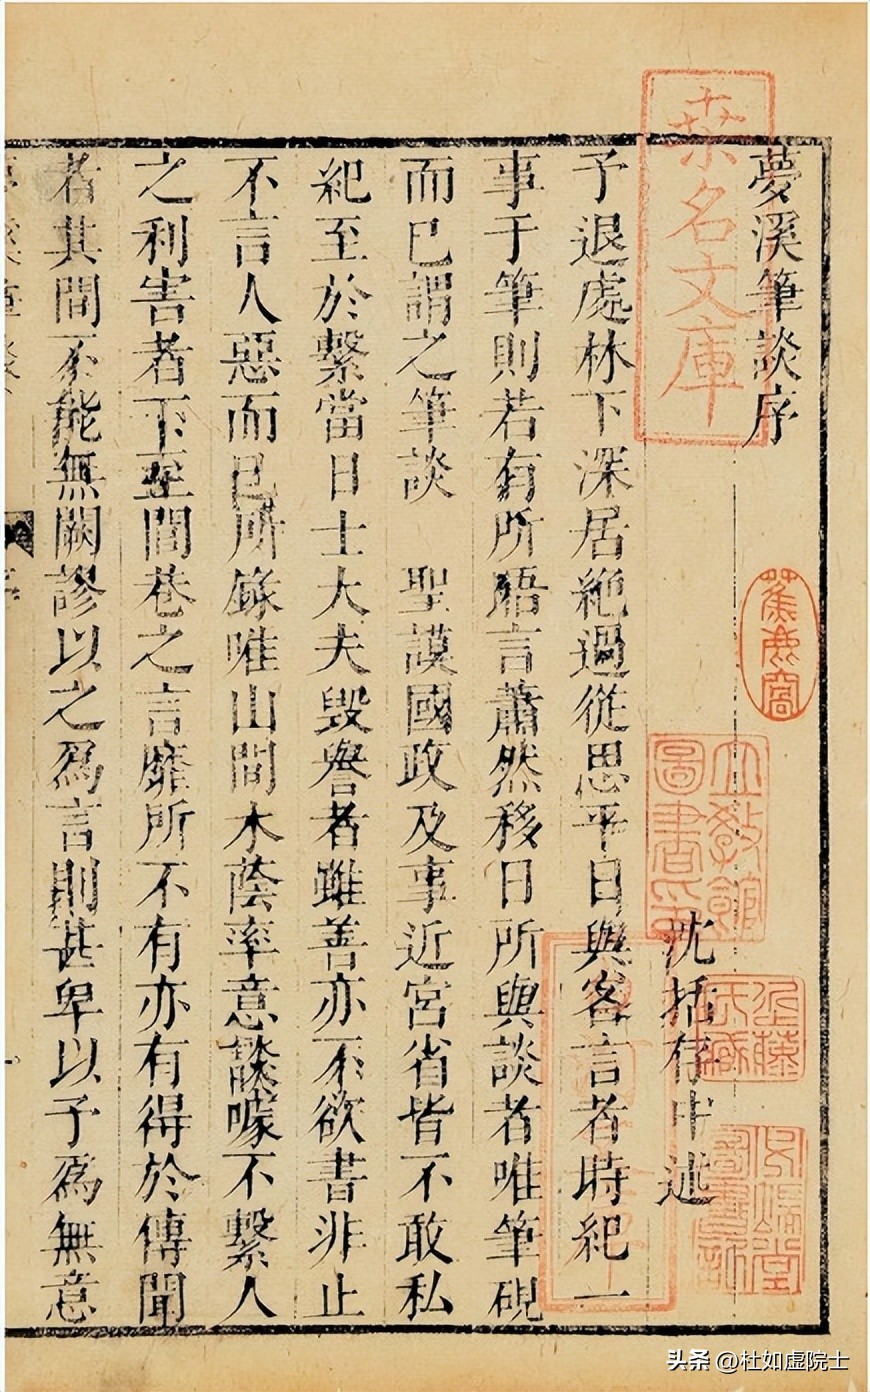 夢溪筆談序
沈括存中述
予退處林下深居絶過從思平日與客言者時紀一
事于筆則若有所晤言蕭然移日所與談者唯筆硯
而已謂之筆談　聖謨國政及事近宮省皆不敢私
紀至於繫當日士大夫毀譽者雖善亦不欲書非止
不言人惡而已所錄唯山間木蔭率意談噱不繫人
之利害者下至閭巷之言靡所不有亦有得於傳聞
者其間不能無闕謬以之爲言則甚卑以予爲無意
桒名文庫
蕉鹿窩
立教館
圖書印
頭条 @杜如虚院士